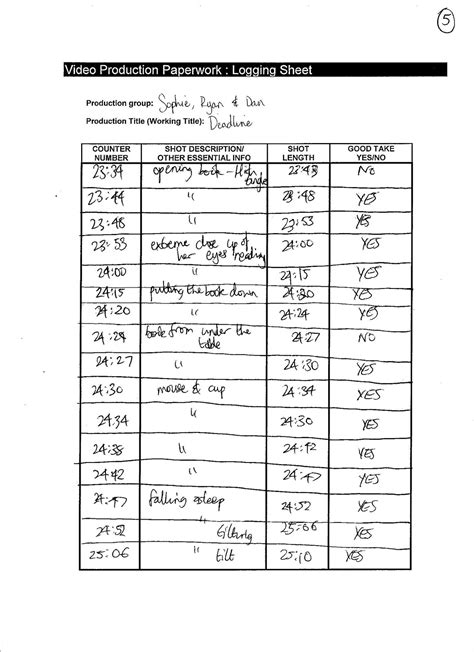 5
Video Production Paperwork : Logging Sheet
Production group: Sophie, Ryan & Dan
Production Title (Working Title): Deadline
COUNTER NUMBER SHOT DESCRIPTION/ OTHER ESSENTIAL INFO SHOT LENGTH GOOD TAKE YES/NO
23:34 opening book - High angle 23:43 NO
23:44 " 23:48 YES
23:48 " 23:53 YES
23:53 extreme close up of her eyes reading 24:00 YES
24:00 " 24:15 YES
24:15 putting the book down 24:20 YES
24:20 " 24:24 YES
24:24 book from under the table 24:27 NO
24:27 " 24:30 YES
24:30 mouse & cup 24:34 YES
24.34 " 24:30 YES
24:38 " 24:42 YES
24:42 " 24:47 YES
24:47 falling asleep 24:52 YES
24:52 " tilting 25:06 YES
25:06 " tilt 25:10 YES